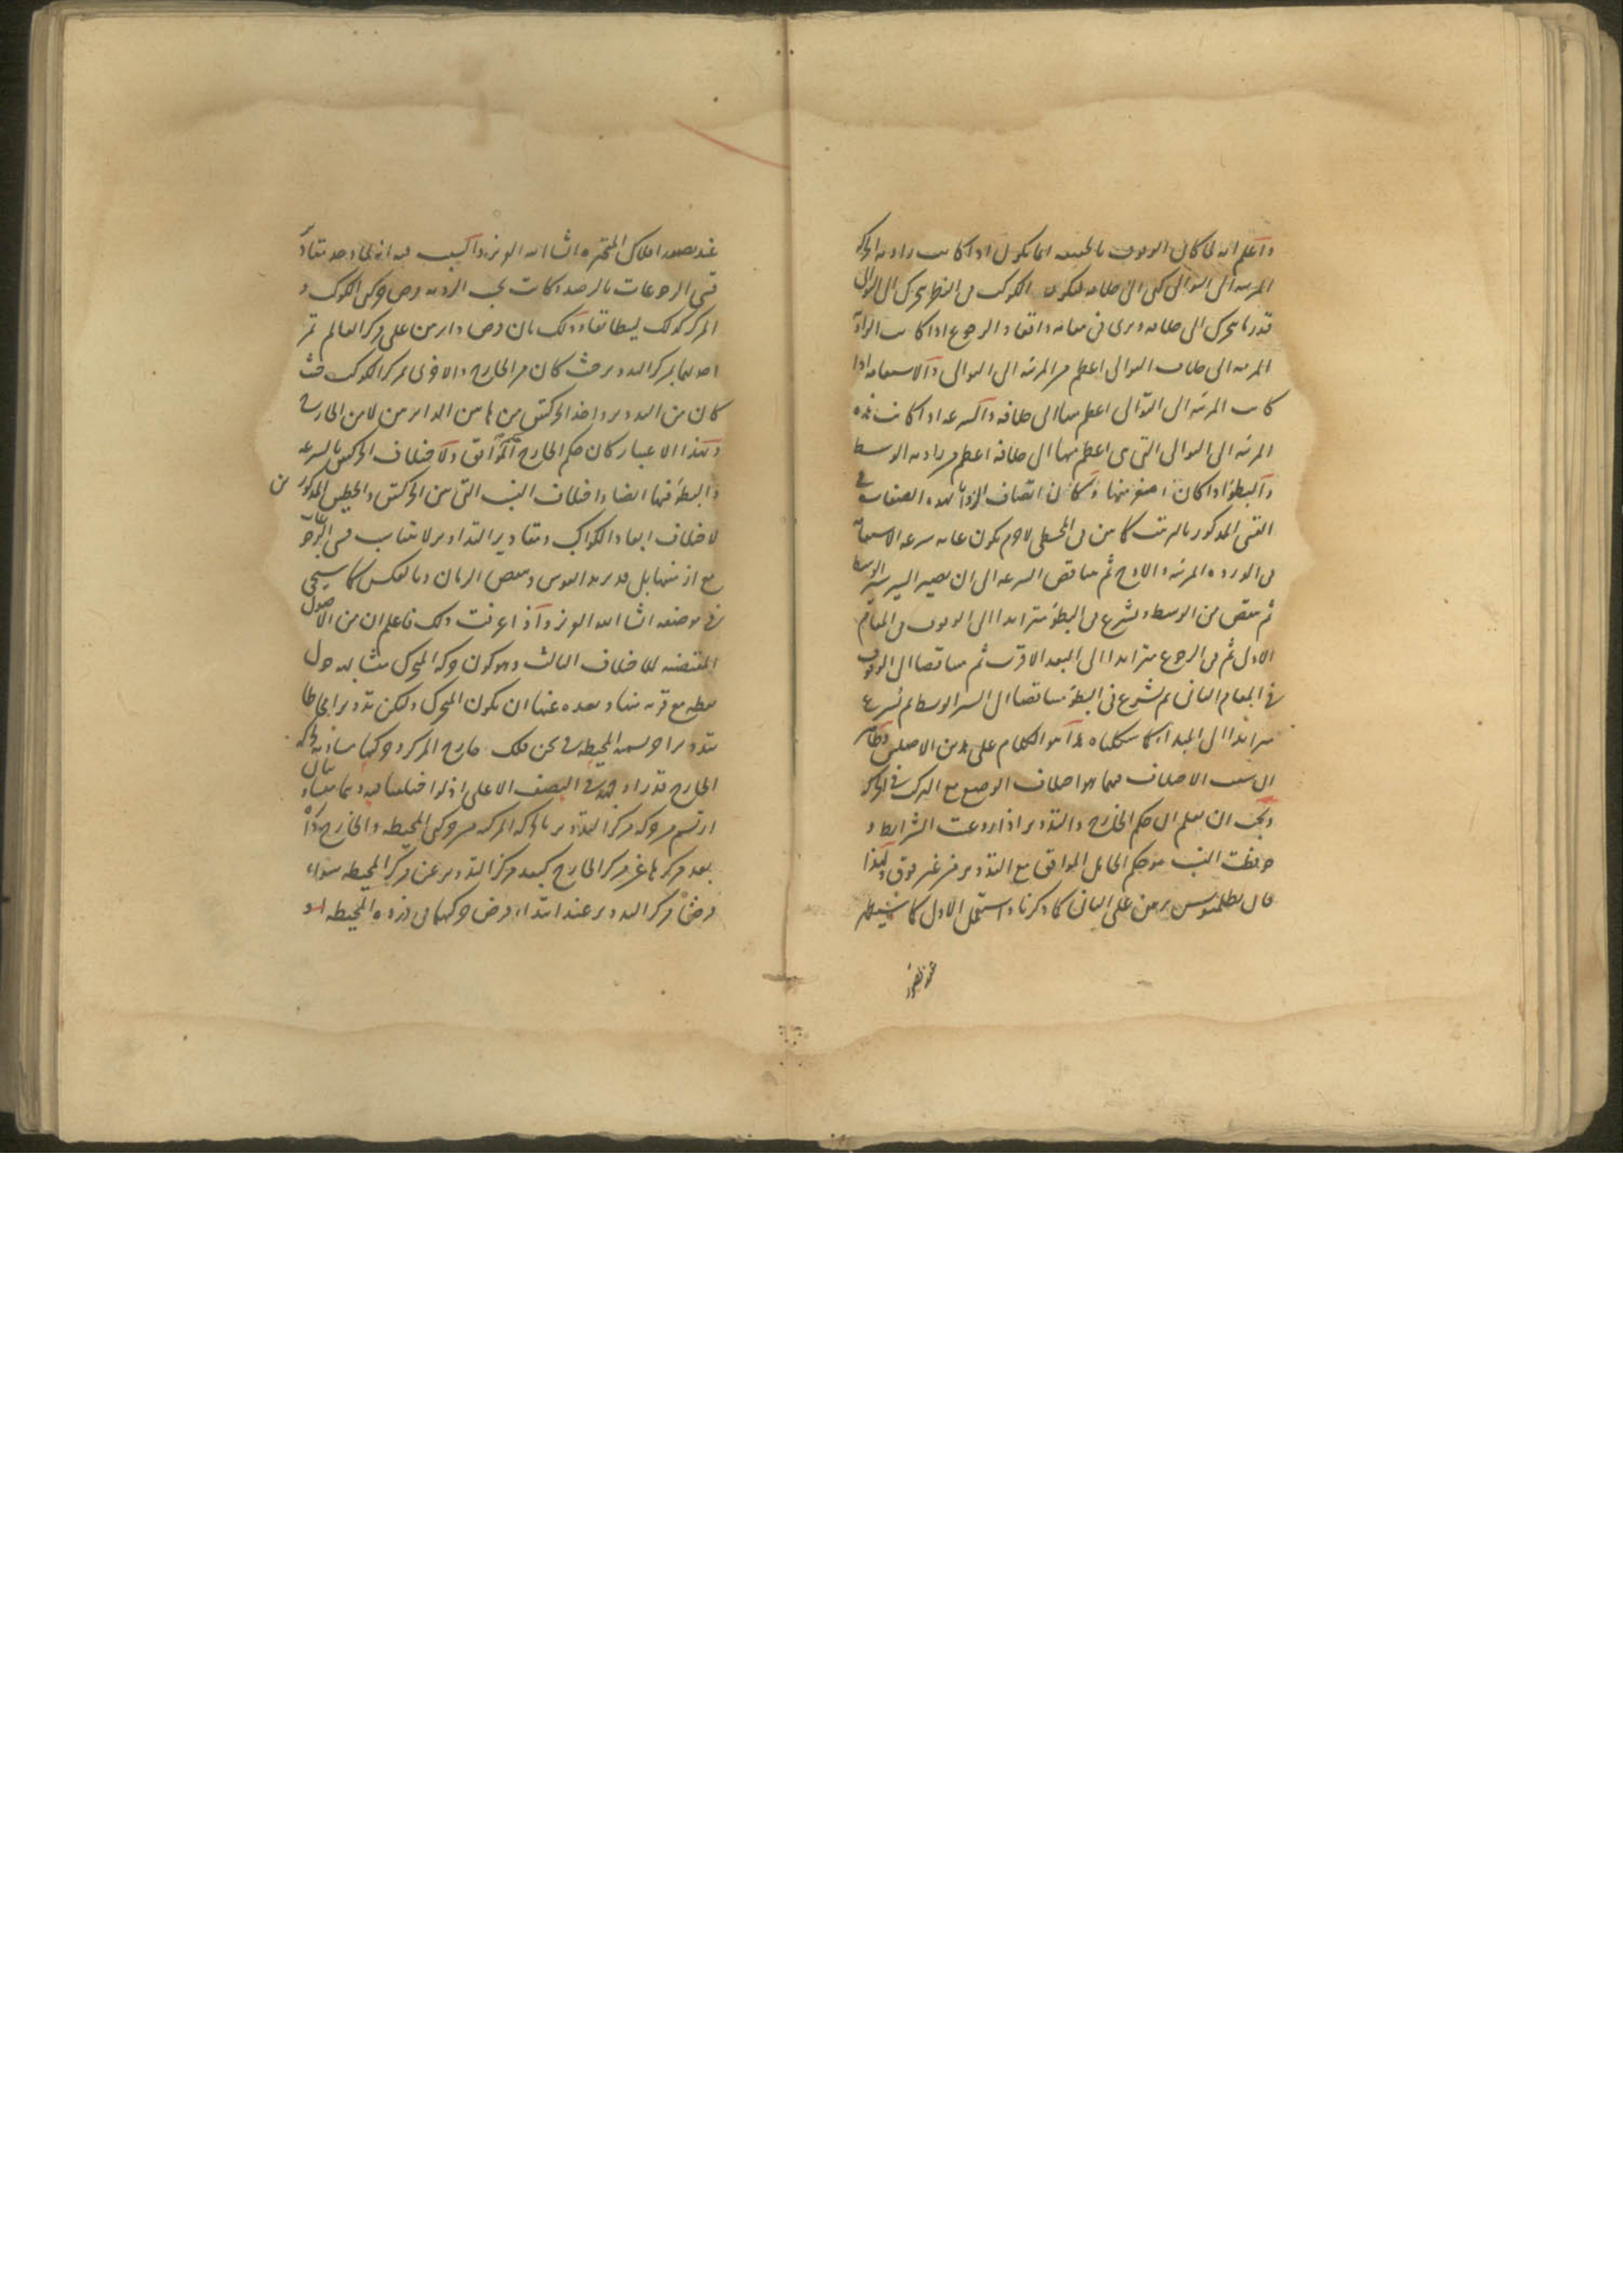 واعلم انه لما كان الوقوف بالحقيقة انما يكون اذا كانت زاوية الحركة
المرئية الى التوالى كهى الى خلافه فيكون الكوكب فى النظر يتحرك الى التوالى
قدر ما يتحرك الى خلافه ويرى فى مقامه واقفا والرجوع اذا كانت الزاوية
المرئية الى خلاف التوالى اعظم من المرئية الى التوالى والاستقامة اذا
كانت المرئية الى التوالى اعظم منها الى خلافه والسرعة اذا كانت هذه
المرئية الى التوالى التى هى اعظم منها الى خلافه اعظم من زاوية الوسط
والبطؤ اذا كان اصغر منها وكان اتصاف الزوايا بهذه الصفات فى
القسى المذكور بالترتيب كما بين فى المجسطى لاجرم يكون غاية سرعة الاستقامة
فى الذروة المرئية والاوج ثم يتناقص السرعة الى ان يصير السير سير الوسط
ثم ينقص من الوسط ويشرع فى البطؤ متزايدا الى الوقوف فى المقام
الاول ثم فى الرجوع متزايدا الى البعد الاقرب ثم متناقصا الى الوقوف
فى المقام الثانى ثم يشرع فى البطؤ متناقصا الى السير الوسط ثم يسرع
متزايدا الى المبدأ كما شكلناه هذا هو الكلام على هذين الاصلين وظاهر
ان سبب الاختلاف فيهما هو اختلاف الوضع مع المدرك فى المركز
ويجب ان يعلم ان حكم الخارج والتدوير اذا روعيت الشرايط و
حفظت النسب هو حكم الحامل الموافق مع التدوير من غير فرق ولهذا
قال بطلميوس برهن على الثانى كما ذكرنا واستعمل الاول كما سيظهر
عند تصور افلاك المتحيرة ان شاء الله العزيز والسبب فيه انه لما وجد تفاوت
قسى الرجوعات بالرصد وكانت بحسب الرؤية وحركتى الكوكب و
المركز كذلك ذلك بان فرض دايرتين على مركز العالم تمر
احديهما بمركز التدوير حيث كان من الخارج والاخرى بمركز الكوكب حيث
كان من التدوير واخذ الحركتين من هاتين الدايرتين لا من الخارج
وبهذا الاعتبار كان حكم الخارج الموافق ولاختلاف الحركتين بالسرعة
والبطؤ فيها ايضا واختلاف النسب التى بين الحركتين والخطين المذكورين
لاختلاف ابعاد الكواكب ومقادير التداوير لا تتناسب قسى الرجوعات
مع ازمنتها بل قد يزيد القوس وينقص الزمان وبالعكس كما سيجى
فى موضعه ان شاء الله العزيز واذا عرفت ذلك فاعلم ان من الاصول
المقتضية للاختلاف الثالث وهو كون حركة المتحرك متشابهة حول
نقطة مع قربه منها وبعده عنها ان يكون المتحرك وليكن تدويرا محاطا
بتدوير اخر نسميه المحيطة فى ثخن فلك خارج المركز وحركتها مساوية لحركة
الخارج قدرا وجهة فى النصف الاعلى اذ لو اختلفتا فيه وبما يتفقان
ارتسم من حركة مركز التدوير بالحركة المركبة من حركتى المحيطة والخارج دايرة
بعد مركزها عن مركز الخارج كبعد مركز التدوير عن مركز المحيطة سواء
فرض مركز التدوير عند ابتداء فرض حركتهما فى ذروة المحيطة او